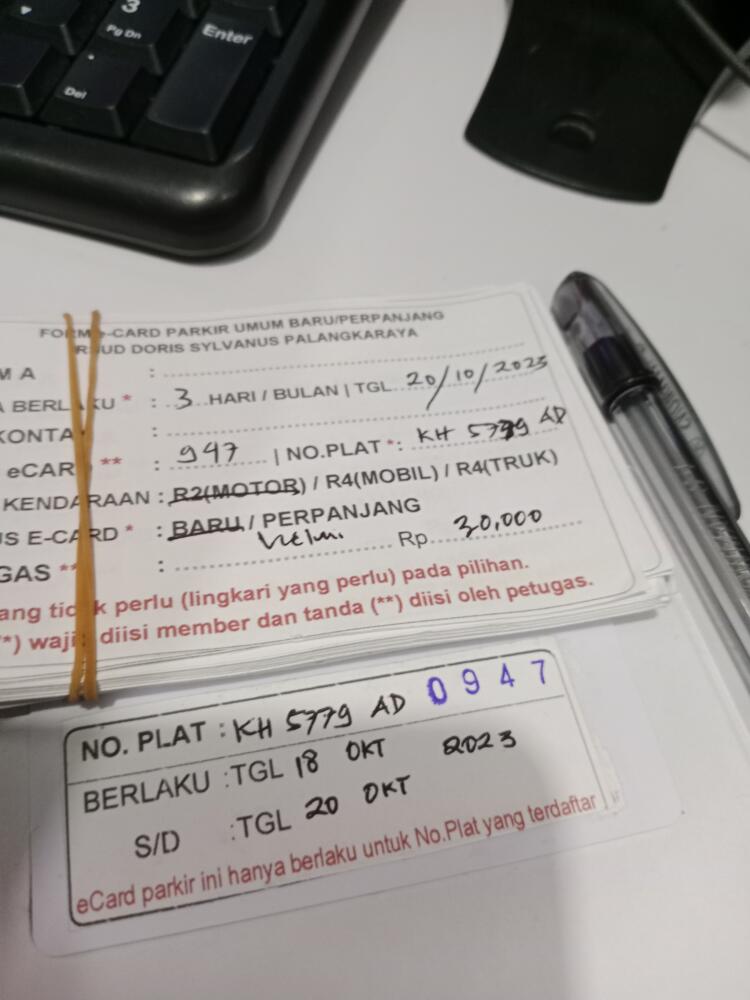 3
Pg Dn
Enter
.
Del
FORM e-CARD PARKIR UMUM BARU/PERPANJANG
RSUD DORIS SYLVANUS PALANGKARAYA
M A :
A BERLAKU * : 3 HARI / BULAN | TGL 20/10/2023
KONTAK :
eCARD ** : 947 | NO.PLAT *: KH 5779 AD
KENDARAAN : R2(MOTOR) / R4(MOBIL) / R4(TRUK)
US E-CARD * : BARU / PERPANJANG
GAS ** : Rp. 30,000
ang tidak perlu (lingkari yang perlu) pada pilihan.
*) wajib diisi member dan tanda (**) diisi oleh petugas.
0947
NO. PLAT : KH 5779 AD
BERLAKU : TGL 18 OKT 2023
S/D : TGL 20 OKT
eCard parkir ini hanya berlaku untuk No.Plat yang terdaftar